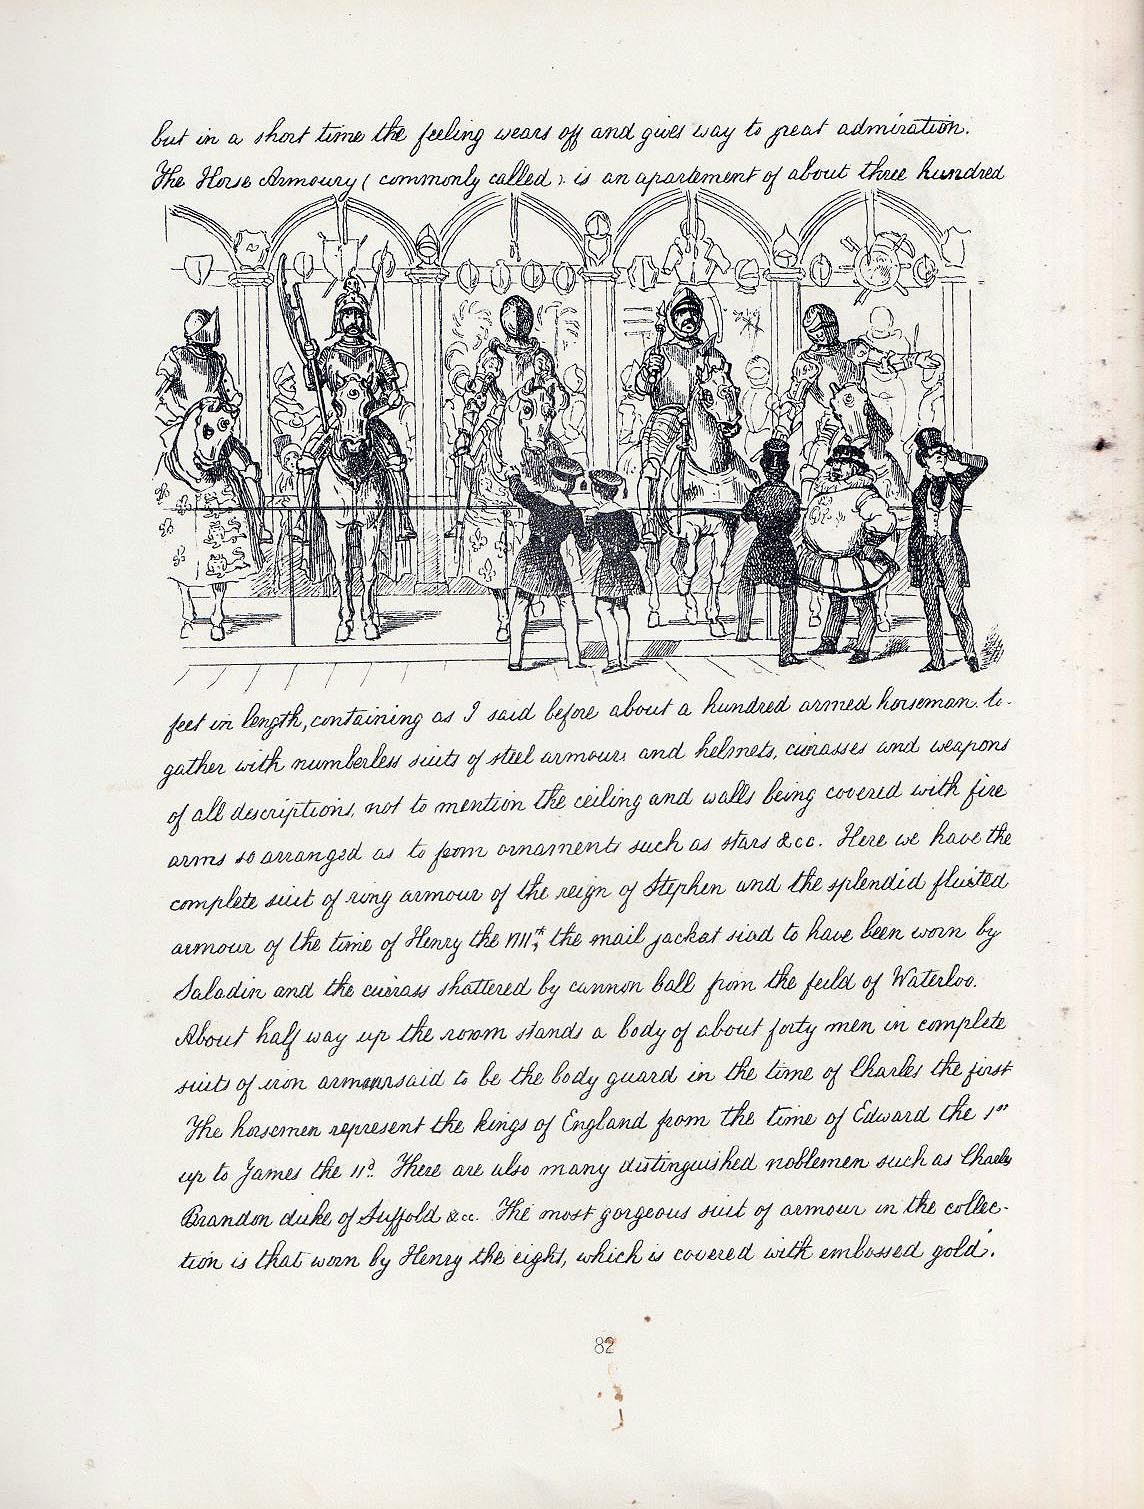 but in a short time the feeling wears off and gives way to great admiration.
The Horse Armoury (commonly called) is an apartement of about three hundred
feet in length, containing as I said before about a hundred armed horseman to-
gather with numberless suits of steel armours and helmets, cuirasses and weapons
of all descriptions, not to mention the ceiling and walls being covered with fire
arms so arranged as to form ornaments such as stars &cc. Here we have the
complete suit of ring armour of the reign of Stephen and the splendid fluted
armour of the time of Henry the VIIth, the mail jacket siad to have been worn by
Saladin and the cuirass shattered by cannon ball from the feild of Waterloo.
About half way up the room stands a body of about forty men in complete
suits of iron armour said to be the body guard in the time of Charles the first
The horsemen represent the kings of England from the time of Edward the 1st
up to James the 11d. There are also many distinguished noblemen such as Charles
Brandon duke of Suffold &cc. The most gorgeous suit of armour in the collec-
tion is that worn by Henry the eight, which is covered with embossed gold.
82